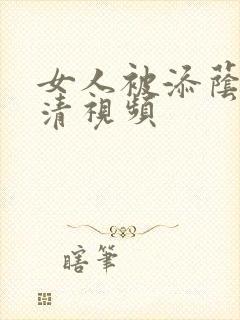 女人被添蔭
清視頻
瞎筆